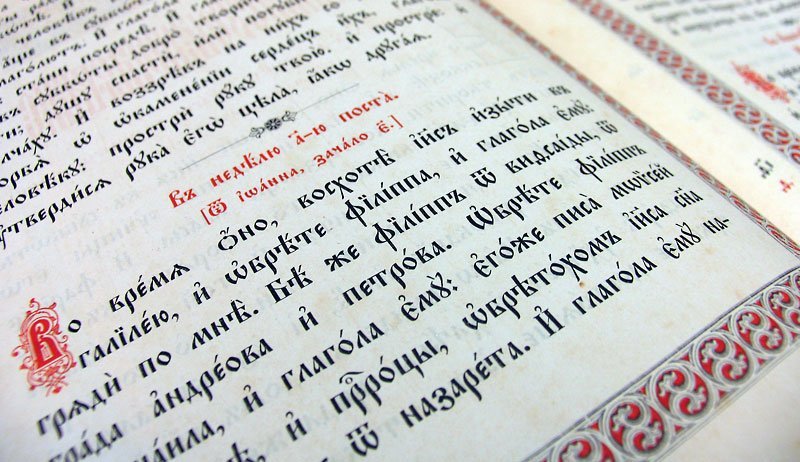 добро твори
спасти, или
И воззрѣвъ на нихъ со
ѡ ѡкаменѣнїи сердецъ ихъ, глаго
простри рꙋкꙋ твою. И простре, и
ᲂутвердисѧ рꙋка є҆гѡ̀ цѣла, ꙗкѡ дрꙋгаѧ.
Въ недѣлю а҃-ю поста̀.
[Ѿ і҆ѡа́нна, зача́ло є҃.]
Во вре́мѧ ѻ҆́но, восхотѣ̀ і҆и҃съ и҆зы́ти въ
галїле́ю, и҆ ѡ҆брѣ́те фїлі́ппа, и҆ глаго́ла є҆мꙋ̀:
грѧдѝ по мнѣ̀. Бѣ́ же фїлі́ппъ ѿ виѳсаі́ды, ѿ
гра́да а҆ндре́ова и҆ петро́ва. Ѡ҆брѣ́те фїлі́ппъ
и҆ глаго́ла є҆мꙋ̀: є҆го́же писа̀ мѡѷсе́й
и҆ прⷪ҇ро́цы, ѡ҆брѣто́хомъ і҆и҃са сн҃а
ѿ назаре́та. И҆ глаго́ла є҆мꙋ̀ на-